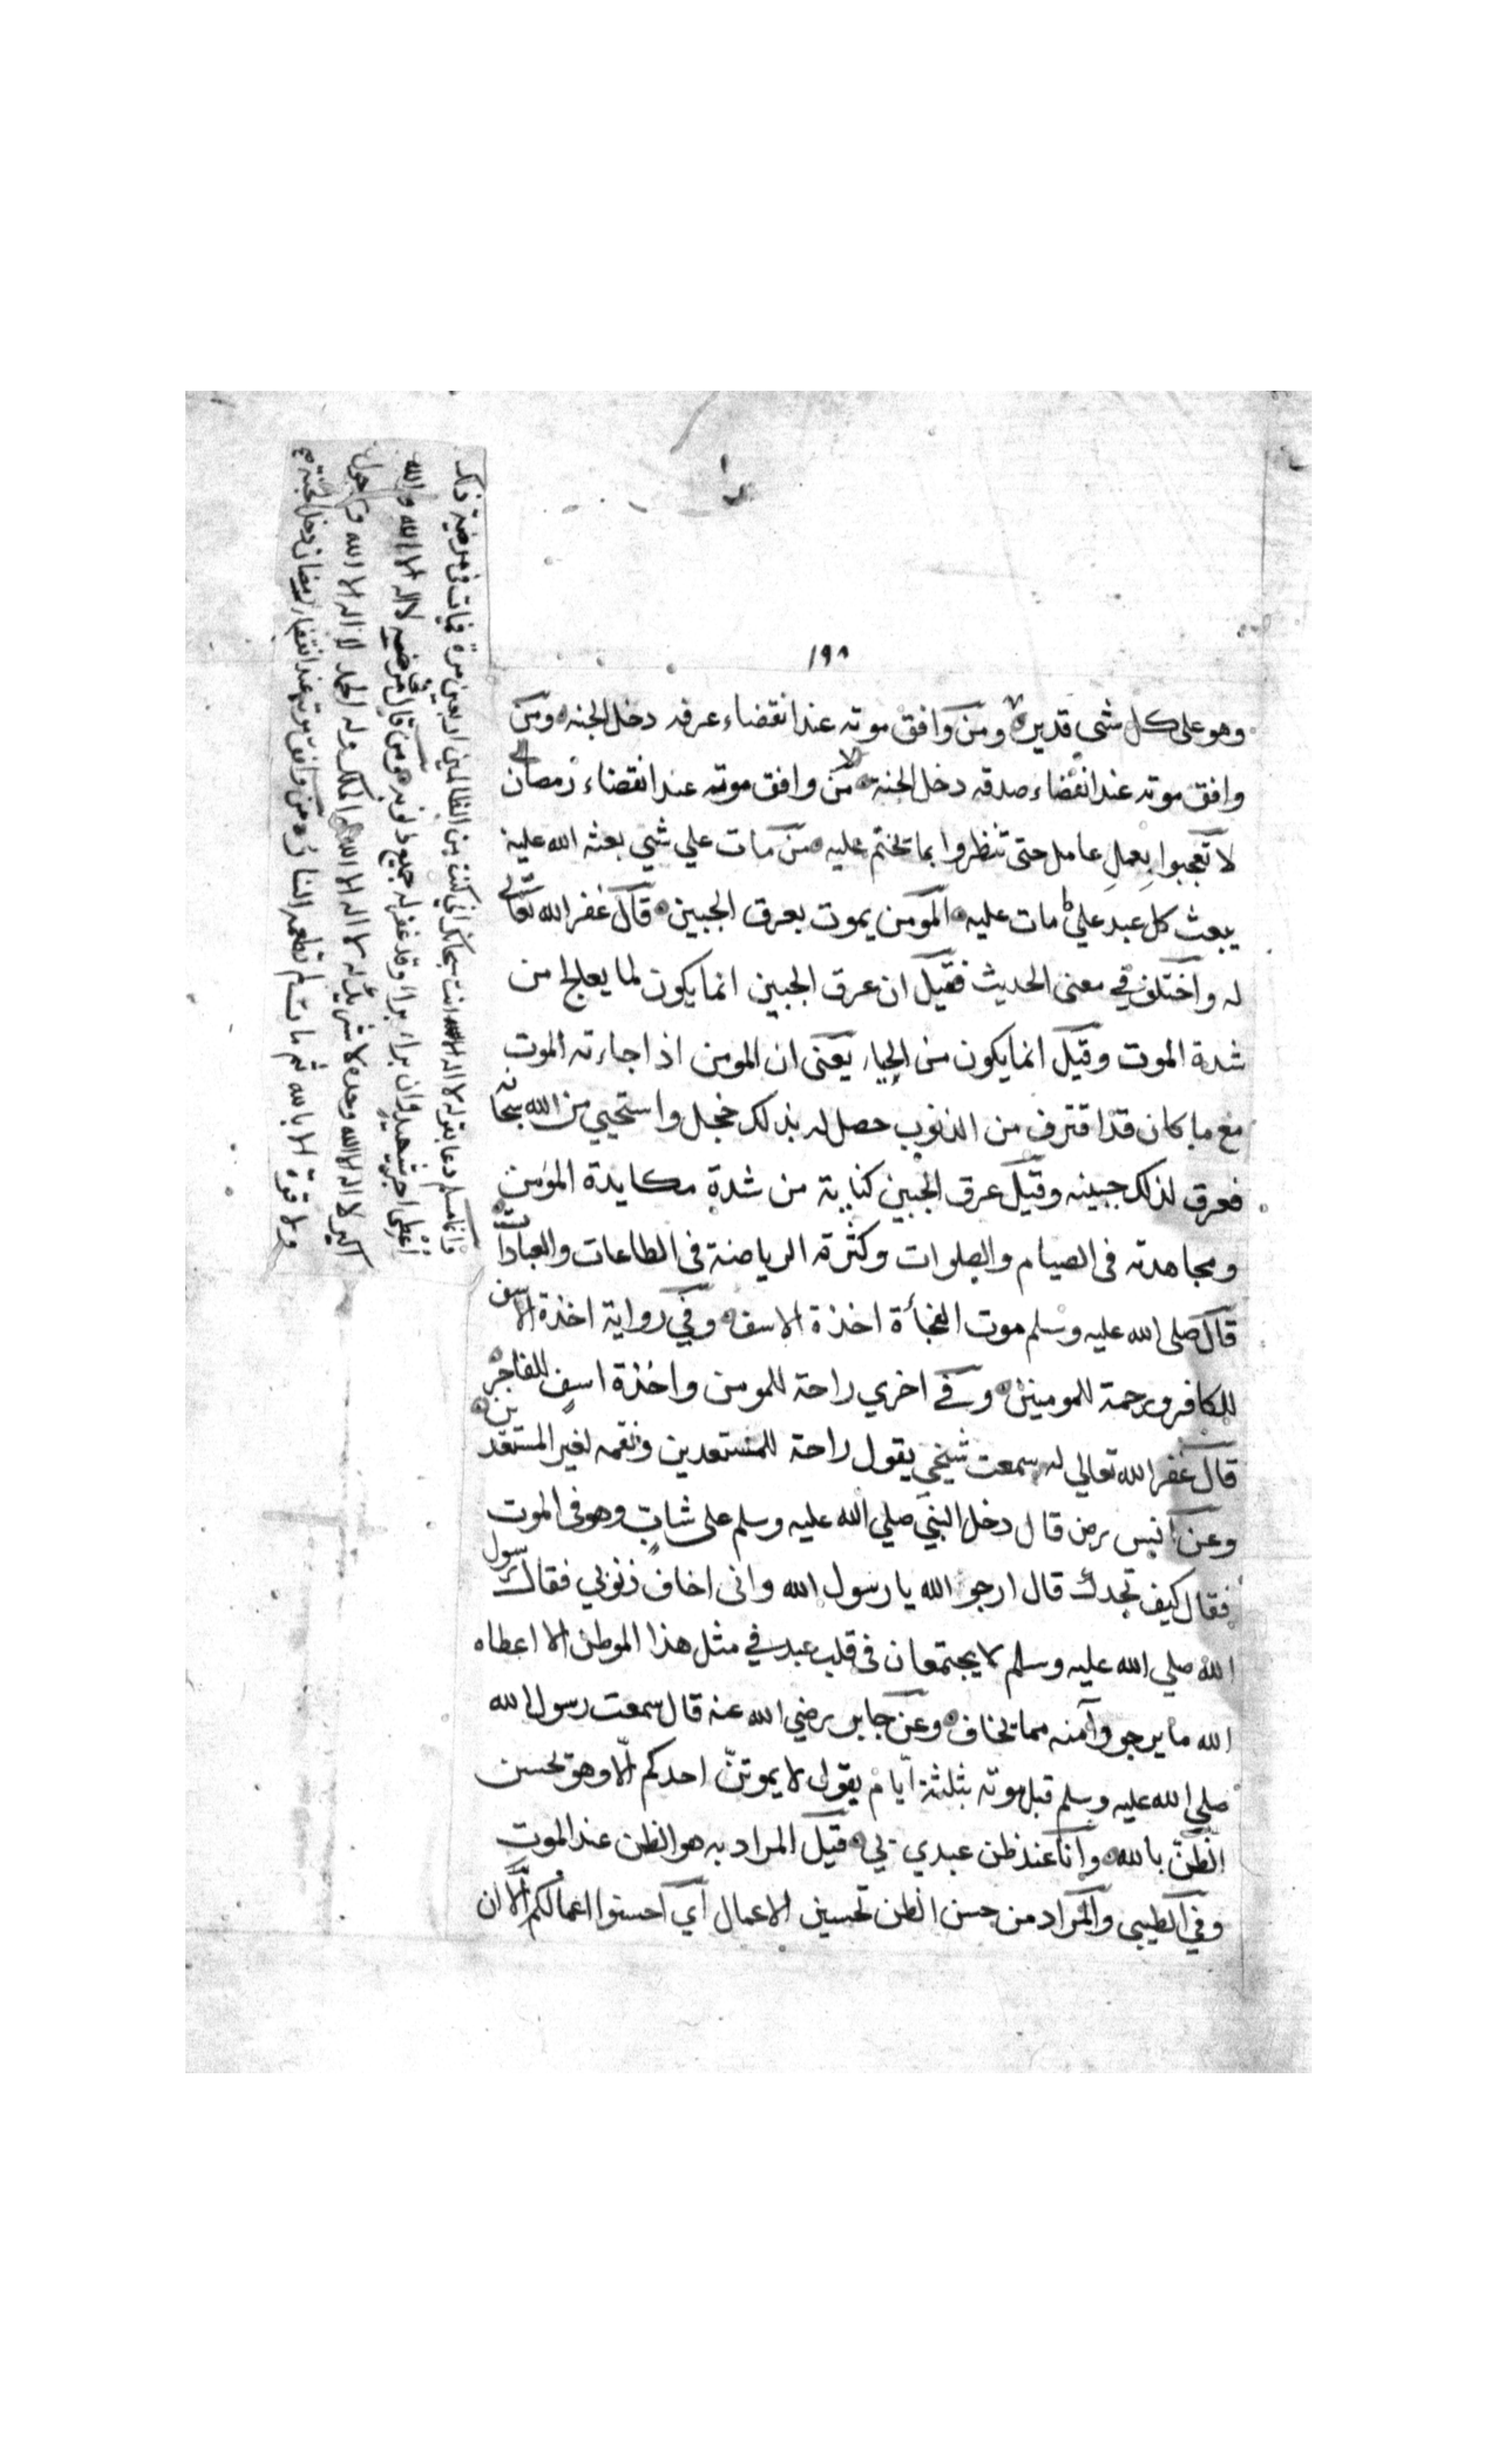 ١٩٨
وهو على كل شى قدير ومن وافق موته عند انقضاء عرفه دخل الجنه ومن
وافق موته عند انقضاء صدقه دخل الجنة من وافق موته عند انقضاء رمضان
لا تعجبوا بعمل عامل حتى تنظروا بما يختم عليه من مات علي شي بعثه الله عليه
يبعث كل عبد علي ما مات عليه المومن يموت بعرق الجبين قال غفر الله تعالى
له واختلف في معنى الحديث فقيل ان عرق الجبين انما يكون لما يعالج من
شدة الموت وقيل انما يكون من الحياء يعنى ان المومن اذا جاءته الموت
مع ما كان قد اقترف من الذنوب حصل له بذلك خجل واستحيي من الله سبحانه
فعرق لذلك جبينه وقيل عرق الجبين كناية من شدة مكايدة المؤمن
ومجاهدته فى الصيام والصلوات وكثرة الرياضة فى الطاعات والعبادات
قال صلى الله عليه وسلم موت الفجأة اخذة الاسف وفي رواية اخذة الاسف
للكافر ورحمة للمومنين وفي اخري راحة للمومن واخذة اسف للفاجر
قال غفر الله تعالي له سمعت شيخي يقول راحة للمستعدين ونقمه لغير المستعدين
وعن انس رض قال دخل النبي صلي الله عليه وسلم على شاب وهو فى الموت
فقال كيف تجدك قال ارجو الله يا رسول الله وانى اخاف ذنوبي فقال رسول
الله صلي الله عليه وسلم لا يجتمعان فى قلب عبد في مثل هذا الموطن الا اعطاه
الله ما يرجو وآمنه مما يخاف وعن جابر رضي الله عنه قال سمعت رسول الله
صلي الله عليه وسلم قبل موته بثلثة ايام يقول لا يموتن احدكم الا وهو يحسن
الظن بالله وانا عند ظن عبدي بي قيل المراد به هو الظن عند الموت
وفي الطيبى والمراد من حسن الظن تحسين الاعمال اي احسنوا اعمالكم الان
وايما مسلم دعا بقوله لا اله الا انت سبحانك اني كنت من الظالمين اربعين مرة فمات فى مرضه ذلك
أعطى اجر شهيد وان براء براء وقد غفر له جميع ذنوبه ومن قال فى مرضه لا اله الا الله والله
اكبر لا اله الا الله وحده لا شريك له لا اله الا الله له الملك وله الحمد لا اله الا الله ولا حول
ولا قوة الا بالله ثم مات لم تطعمه النار من وافق موته عند انقضاء رمضان دخل الجنة صح